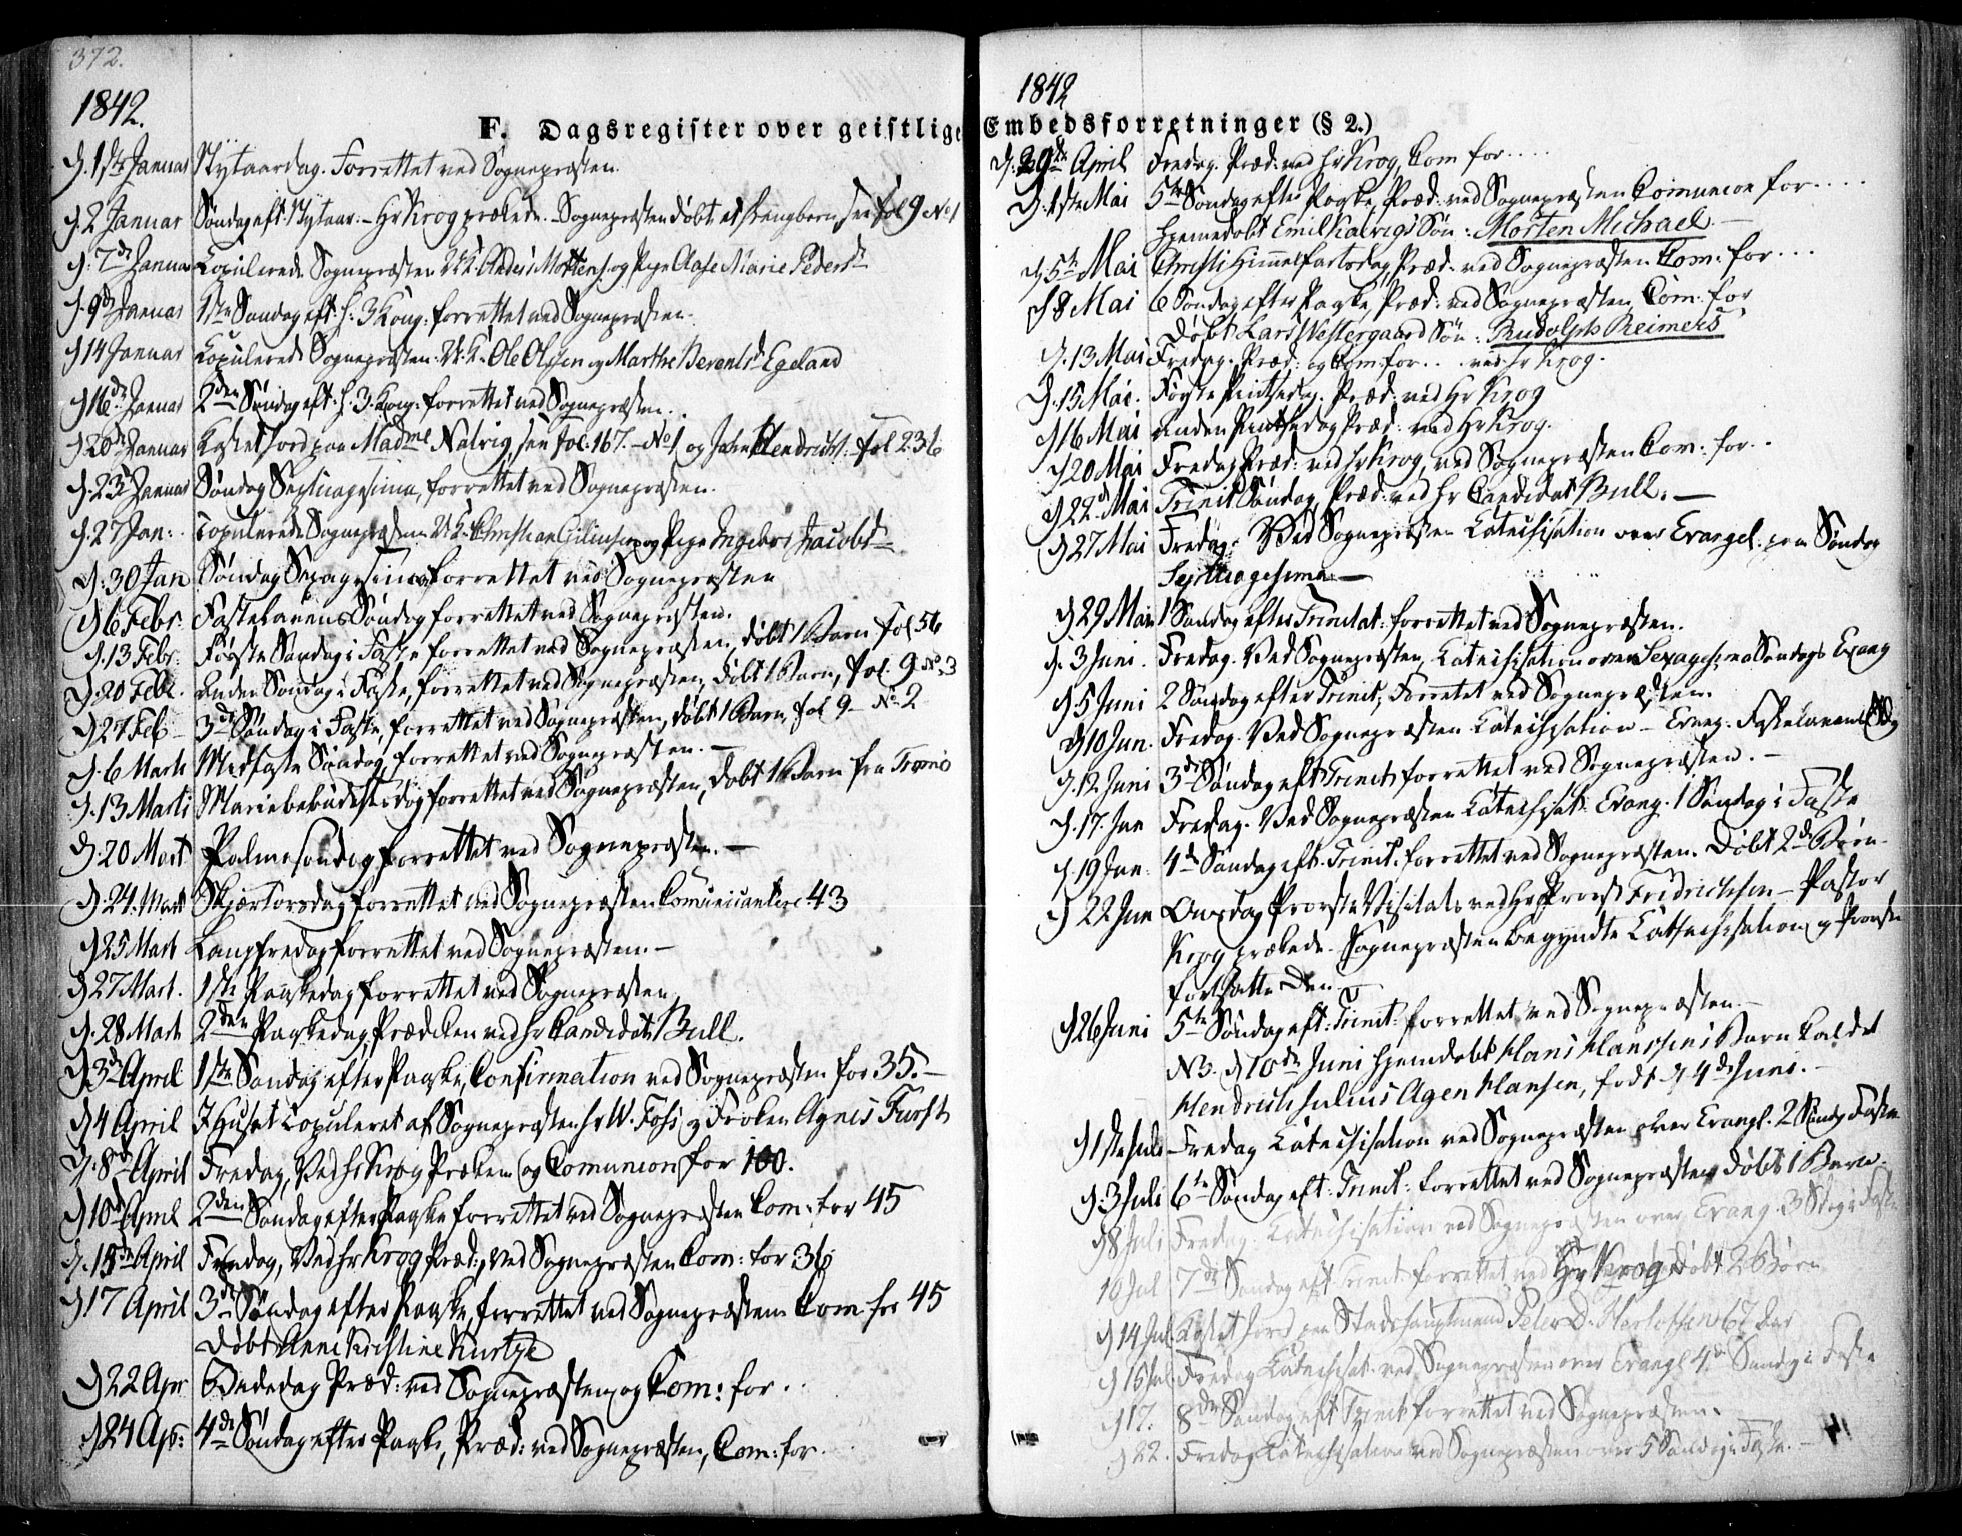 372.
1842.
F. Dagsregister over geistlige
D. 1ste Januar Nytaarsdag. Forrettet ved Sognepræsten.
D. 2 Januar Søndag eft. Nytaar. – Hr Krog prækede. Sognepræsten døbt et Pengbarn, see fol 9 No 1
D. 7de Januar Copulerede Sognepræsten U.K. Anders Mortens: og Pige Aase Marie Pedersd
D. 9de Januar 1ste Søndag eft. H. 3 Kong: forrettet ved Sognepræsten.
D 14 Januar Copulerede Sognepræsten U.K. Ole Olsen og Marthe Berentsd Egeland
D 16de Januar 2den Søndag eft. H. 3 Kong: forrettet ved Sognepræsten.
D 20de Januar Kastet Jord paa Madme Natvig, see fol. 167. – No 1 og John Hendrichs. fol 236
D. 23de Januar Søndag Septuagesima, forrettet ved Sognepræsten.
D. 27 Jan: Copulerede Sognepræsten U.K. Christian og Pige Ingebor Jacobsd
D. 30 Jan Søndag Sexagesima forrettet ved Sognepræsten
D 6 Febr. Fastelavens Søndag forrettet ved Sognepræsten.
D. 13 Febr: Første Søndag i Faste forrettet ved Sognepræsten, døbt 1 Barn fol 56
D. 20 Febr. Anden Søndag i Faste, forrettet ved Sognepræsten, døbt 1 Barn, fol. 9 No 3
D 27 Feb – 3de Søndag i Faste, forrettet ved Sognepræsten, døbt 1 Barn, fol 9 – No 2
D. 6 Marti Midfaste Søndag, forrettet ved Sognepræsten. –
D. 13 Marti Mariæbebudelsesdag forrettet ved Sognepræsten, døbt 1 Barn fra Tromø
D. 20 Mart Palmesøndag forrettet ved Sognepræsten. –
D. 24. Mart Skjærtorsdag forrettet ved Sognepræsten Comunicantere 43
D 25 Mart Langfredag forrettet ved Sognepræsten. –
D 27 Mart. 1ste Paaskedag forrettet ved Sognepræsten
D. 28 Mart 2den Paaskedag Prædeken ved Hr Candidat Bull.
D 3de April 1ste Søndag efter Paaske, Confirmation ved Sognepræsten for 35. –
D 4 April I Huset Copuleret af Sognepræsten Hr W. Foss og Frøken Agnes Furst
D. 8de April Fredag, Ved Hr Krog Præken og Comunion for 100.
D 10de April 2den Søndag efter Paaske forrettet ved Sognepræsten Com: for 45
D. 15de April Fredag, Ved Hr Krog Præd:, ved Sognepræsten Com: for 36
D 17 April 3de Søndag efter Paaske, forrettet ved Sognepræsten Com for 45
Døbt Anne Kirstine
D 22 Apr Bededag Præd: ved Sognepræsten og Com: for .
D 24 Ap: 4de Søndag efter Paaske, Præd: ved Sognepræsten, Com: for .
1842
Embedsforretninger (§ 2.)
D. 29de April Fredag. Præd: ved Hr Krog, Com for ....
D. 1ste Mai 5te Søndag efter Paaske, Præd: ved Sognepræsten Comunion for ....
Hjemmedøbt Emil Søn: Morten Michael –
D 5te Mai Christi Himmelfartsdag Præd: ved Sognepræsten Com: for ...
D 8 Mai 6 Søndag efter Paaske, Præd: ved Sognepræsten, Com: for
Døbt Lars Westergaard Søn: Rudolph Reimers
D. 13 Mai Fredag. Præd: og Com: for .. ved Hr Krog.
D. 15 Mai. Første Pintsedag. Præd: ved Hr Krog
D 16 Mai Anden Pintsedag Præd: ved Hr Krog.
D 20 Mai Fredag Præd: ved Hr Krog, ved Sognepræsten Com: for ..
D 22de Mai Trinit. Søndag, Præd: ved Hr Candidat Bull. –
D 27 Mai Fredag. Ved Sognepræsten Catechisation over Evangel: paa Søndag
Septuagesima –
D 29 Mai 1 Søndag efter Trinitat: forrettet ved Sognepræsten.
D. 3 Juni. Fredag. Ved Sognepræsten, Catechisation over Sexagesima Søndags Evang
D 5 Juni 2 Søndag efter Trinit, Forrettet ved Sognepræsten.
D 10 Jun. Fredag. Ved Sognepræsten Catechisation – Evang. Fastelavens Sdg
D. 12 Juni 3de Søndag eft Trinit forrettet ved Sognepræsten. –
D. 17. Jun Fredag. Ved Sognepræsten Catechisat: Evang. 1 Søndag i Faste
D. 19 Jun. 4de Søndag eft. Trinit. forrettet ved Sognepræsten. Døbt 2de Børn.
D 22 Jun Onsdag Provste Visitats ved Hr Provst Fridrichsen – Pastor
Krog prækede. Sognepræsten begyndte Catechisation og Provsten
fortsatte den –
D 26 Juni 5te Søndag eft: Trinit: forrettet ved Sognepræsten –
NB. D 10de Juni hjemdøbt Hans Hanssens Barn kaldet
Hendrich Julius Agen Hansen, født D 4de Juni. –
D 1ste Juli Fredag Catechisation ved Sognepræsten over Evangl. 2 Søndag Faste
D. 3 Juli 6te Søndag eft: Trinit: forrettet ved Sognepræsten døbt 1 Barn.
D 8 Juli Fredag Catechisation ved Sognepræsten over Evang. 3 Sdag i Faste
10 Jul 7de Søndag eft Trinit forrettet ved Hr Krog døbt 2 Børn
D 14 Jul. Kastet Jord paa Stadshauptmand Peter D. Herlofsen 67 Aar
D 15 Jul. Fredag Catechisat. ved Sognepræsten over Evangl 4de Søndag i Faste
D 17. 8de Søndag eft Trinit forrettet ved Sognepræsten.
D 22. Fredag Catechisation ved Sognepræsten over 5 Søndag i Faste. –